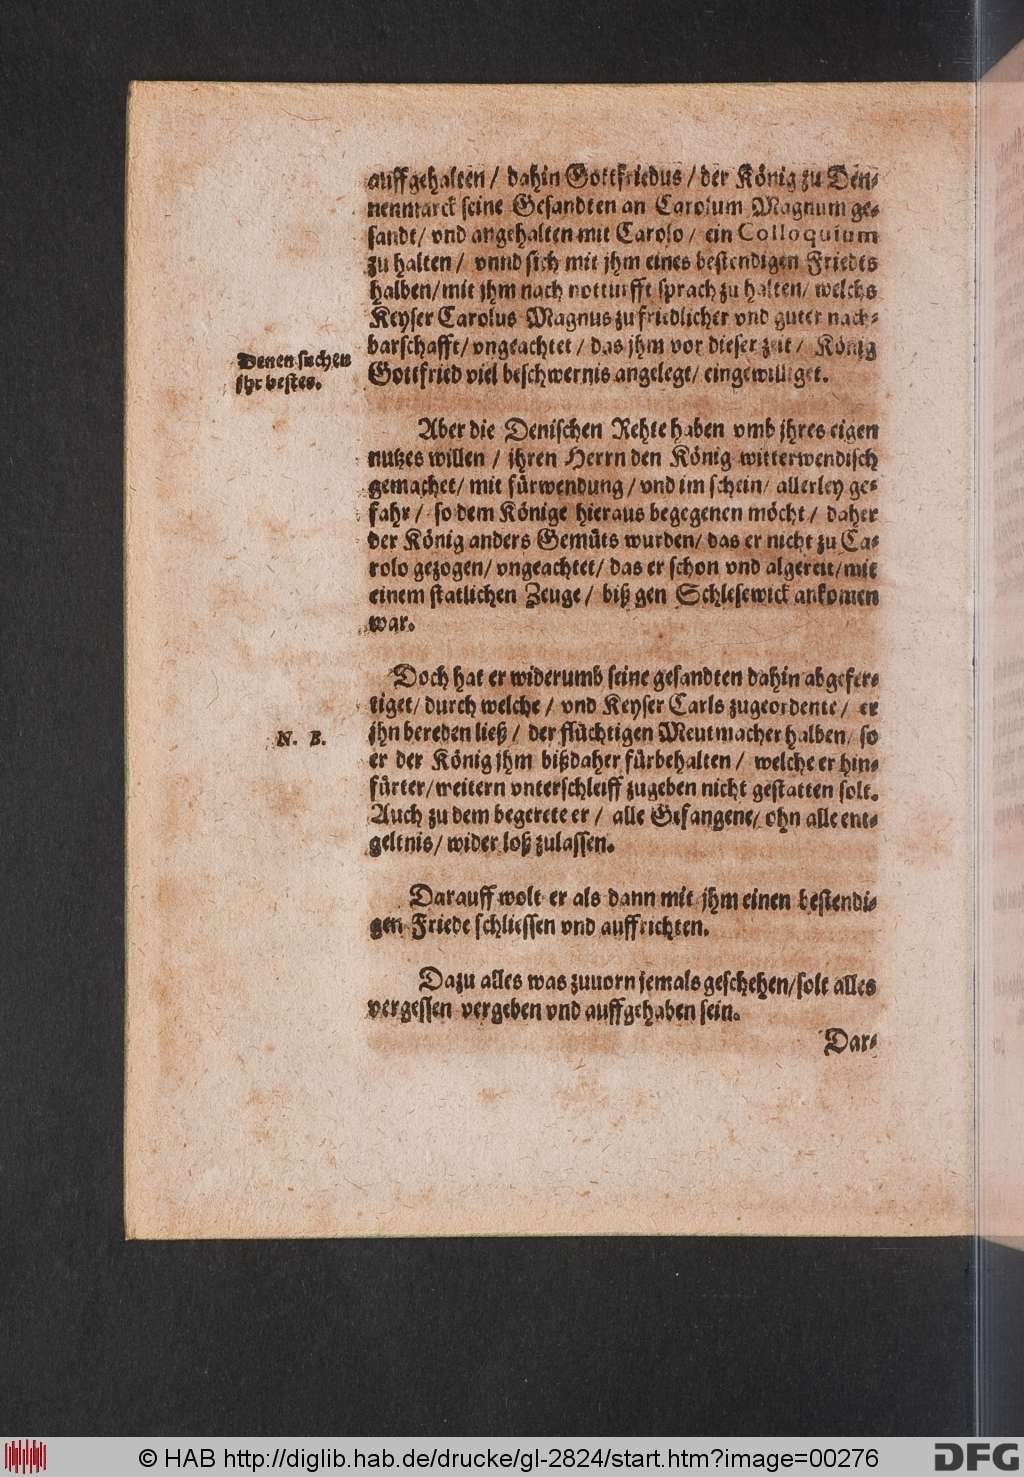 auffgehalten / dahin Gottfriedus / der König zu Den⸗
nenmarck seine Gesandten an Carolum Magnum ge⸗
sandt / vnd angehalten mit Carolo / ein Colloquium
zu halten / vnnd sich mit jhm eines bestendigen Friedts
halben / mit jhm nach notturfft sprach zu halten / welchs
Keyser Carolus Magnus zu friedlicher vnd guter nach⸗
barschafft / vngeachtet / das jhm vor dieser zeit / König
Gottfried viel beschwernis angelegt / eingewilliget.
Denen suchen
jhr bestes.
Aber die Denischen Rehte haben vmb jhres eigen
nutzes willen / jhren Herrn den König witterwendisch
gemachet / mit fürwendung / vnd im schein / allerley ge⸗
fahr / so dem Könige hieraus begegenen möcht / daher
der König anders Gemüts wurden / das er nicht zu Ca⸗
rolo gezogen / vngeachtet / das er schon vnd algereit / mit
einem statlichen Zeuge / biß gen Schlesewick ankomen
war.
Doch hat er widerumb seine gesandten dahin abgefer⸗
tiget / durch welche / vnd Keyser Carls zugeordente / er
jhn bereden ließ / der flüchtigen Meutmacher halben / so
N. B.
er der König jhm bißdaher fürbehalten / welche er hin⸗
fürter / weitern vnterschleiff zugeben nicht gestatten solt.
Auch zu dem begerete er / alle Gefangene / ohn alle ent⸗
geltnis / wider loß zulassen.
Darauff wolt er als dann mit jhm einen bestendi⸗
gen Friede schliessen vnd auffrichten.
Dazu alles was zuuorn jemals geschehen / solt alles
vergessen vergeben vnd auffgehaben sein.
Dar⸗
© HAB http://diglib.hab.de/drucke/gl-2824/start.htm?image=00276
DFG